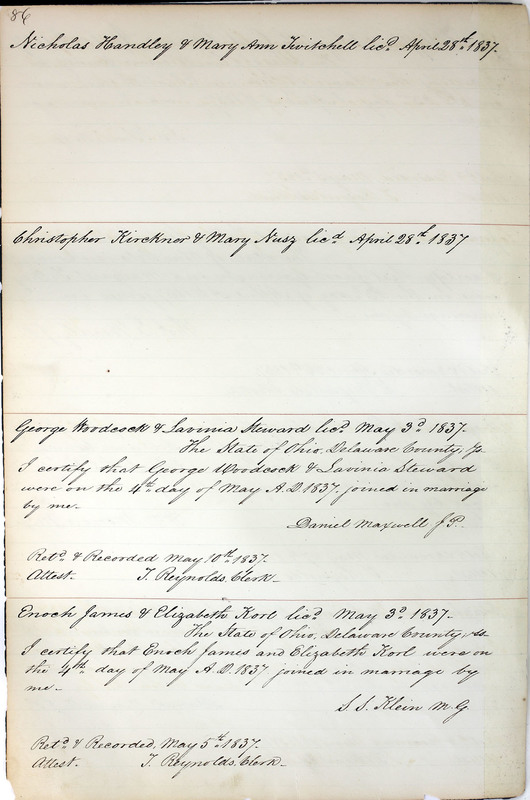 86
Nicholas Handley & Mary Ann Twitchell licd. April 28th. 1837.
Christopher Kirckner & Mary Nusz licd. April 28th. 1837
George Woodcock & Lavinia Steward licd. May 3d. 1837.
The State of Ohio, Delaware County, ss.
I certify that George Woodcock & Lavinia Steward
were on the 4th. day of May A.D. 1837, joined in marriage
by me.
Daniel Maxwell J.P.
Retd. & Recorded May 10th. 1837.
Attest. T. Reynolds, Clerk
Enoch James & Elizabeth Korl licd. May 3d. 1837.
The State of Ohio, Delaware County, ss.
I certify that Enoch James and Elizabeth Korl were on
the 4th. day of May A.D. 1837 joined in marriage by
me.
S. S. Klein M.G.
Retd. & Recorded, May 5th. 1837.
Attest. T. Reynolds, Clerk